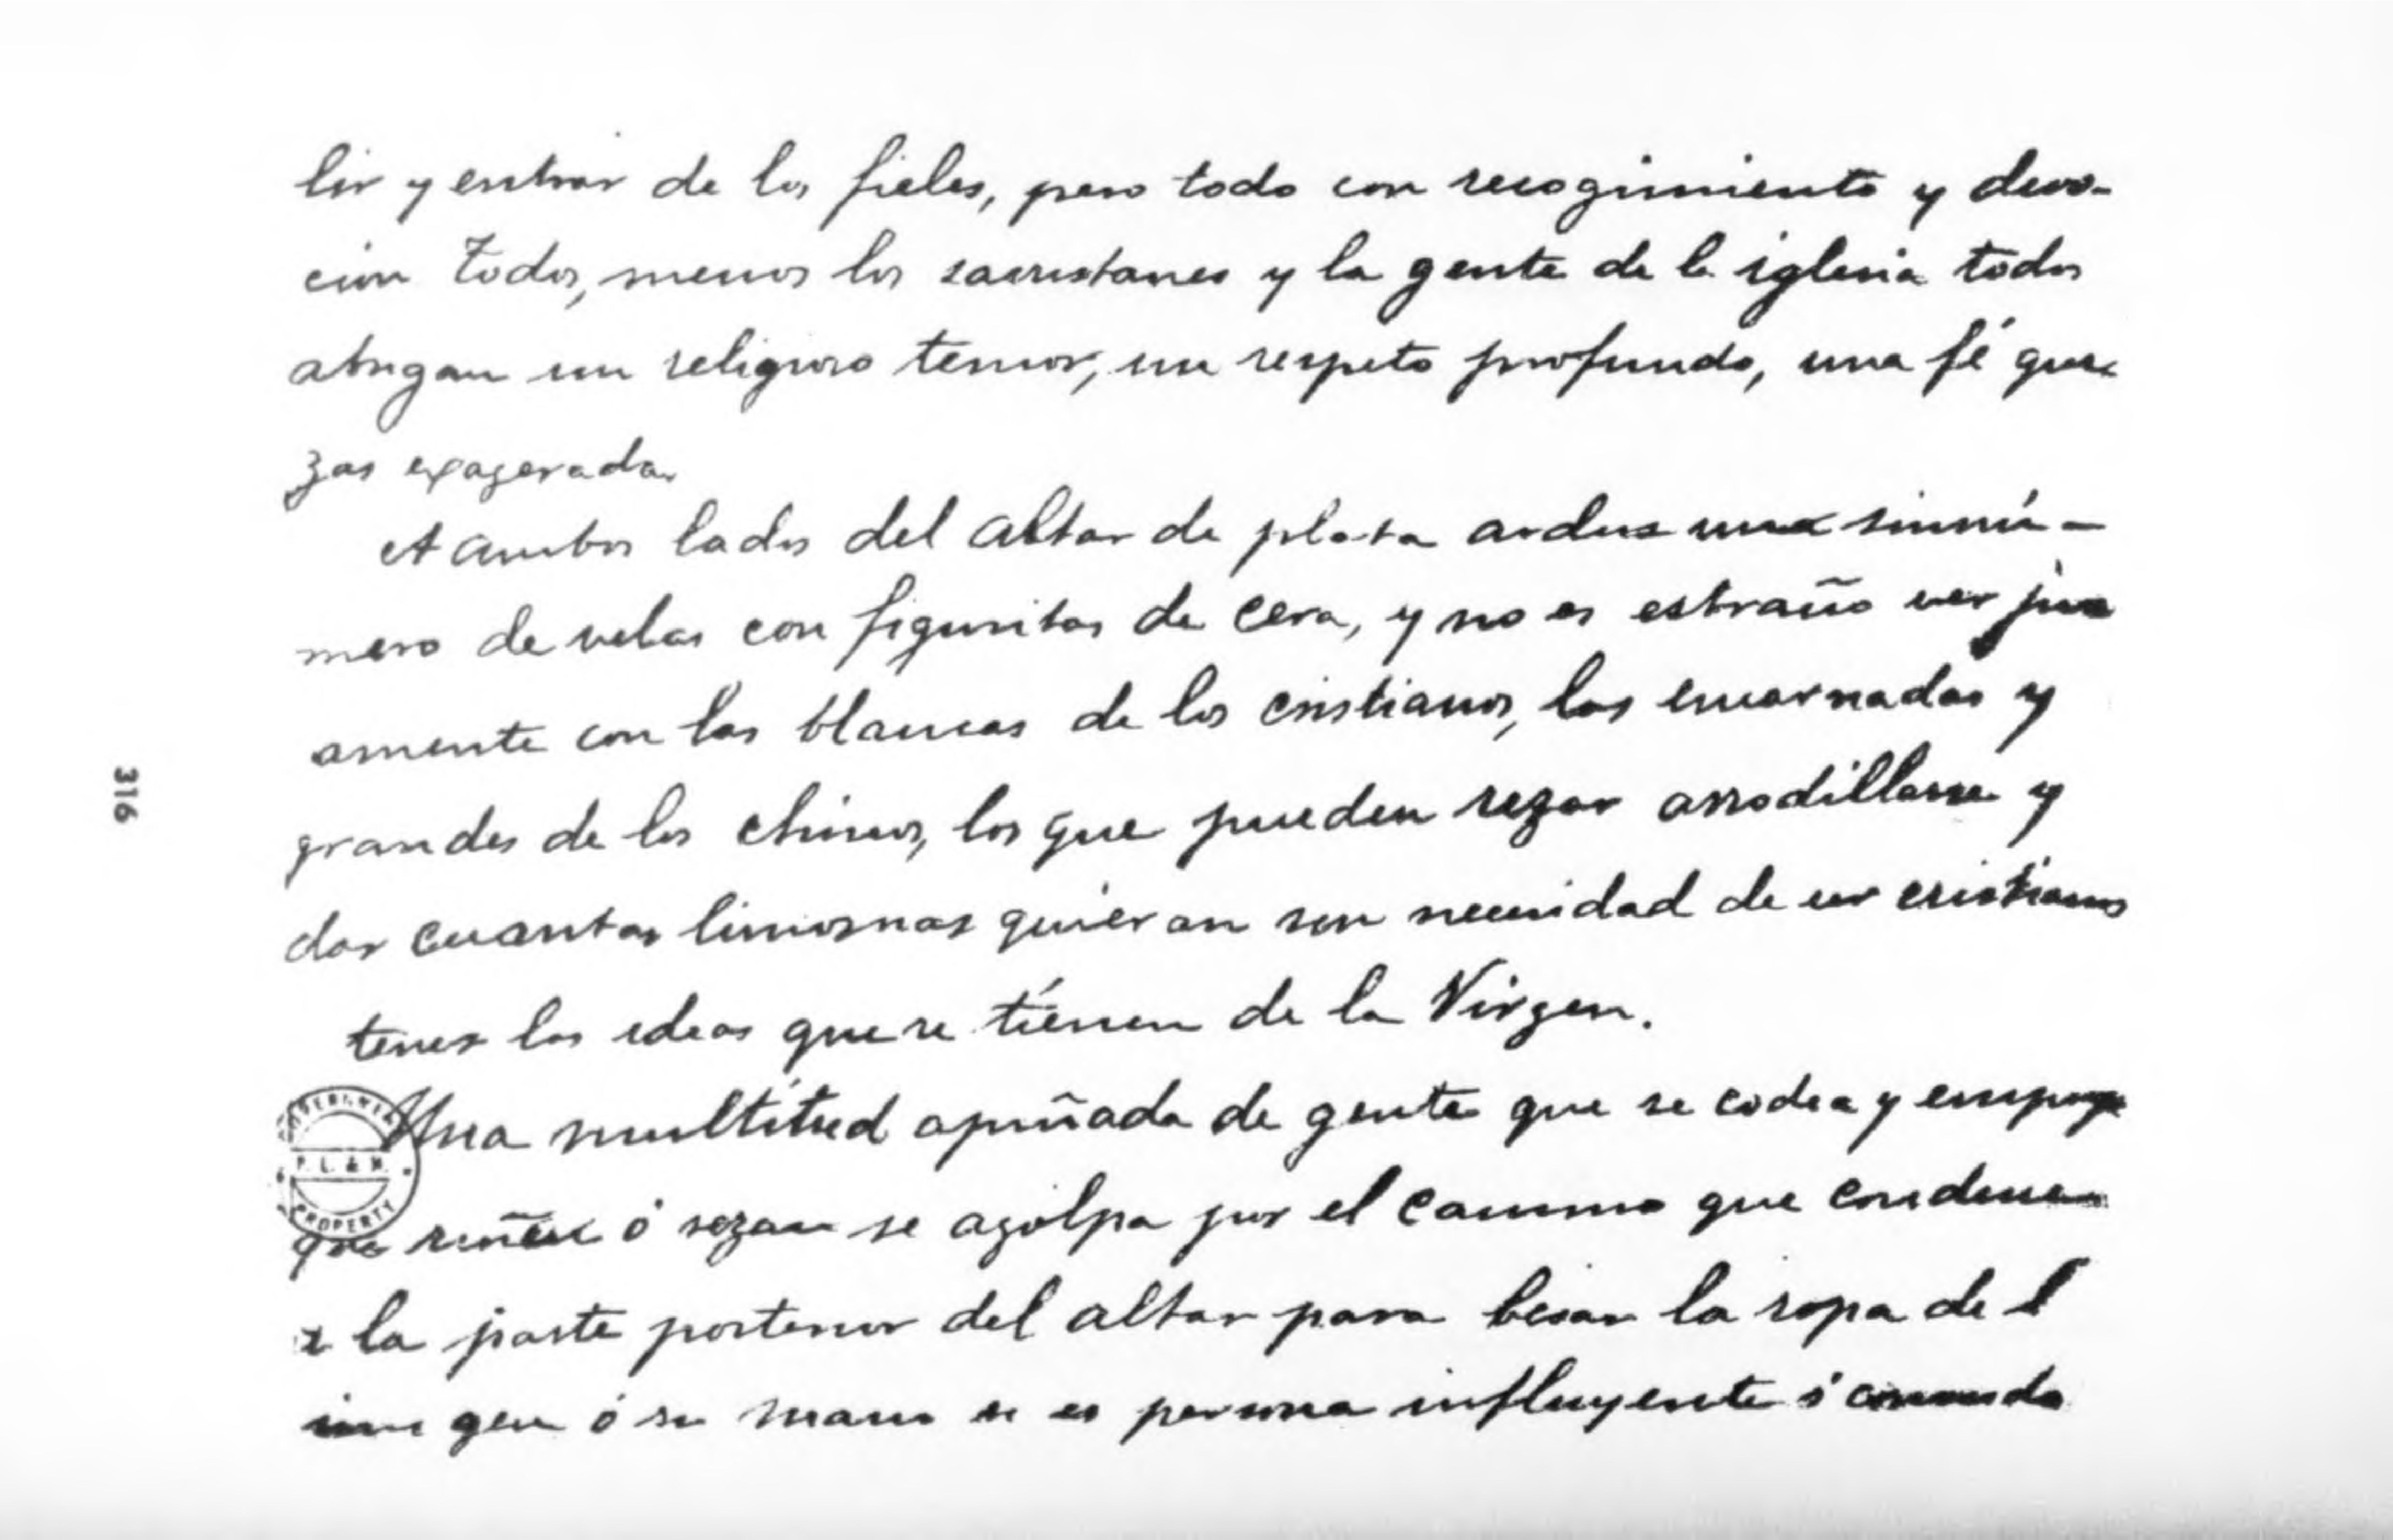 lir y entrar de los fieles, pero todo con recogimiento y devo-
cion todos, menos los sacristanes y la gente de la iglesia todos
abrigan un religioso temor, un respeto profundo, una fé qui-
zas exagerada.
A ambos lados del altar de plata arden una sinnú-
mero de velas con figuritas de cera, y no es estraño ver
amente con las blancas de los cristianos, las encarnadas y
grandes de los chinos, los que pueden rezar arrodillarse y
dar cuantas limosnas quieran sin necesidad de ser cristianos
tener las ideas que se tienen de la Virgen.
Una multitud apiñada de gente que se codea y empuja
que riñen ó rezan se agolpa por el camino que conduce
a la parte posterior del altar para besar la ropa de l
imagen ó su mano si es persona influyente ó
316
P.L.& M.
PROPERTY